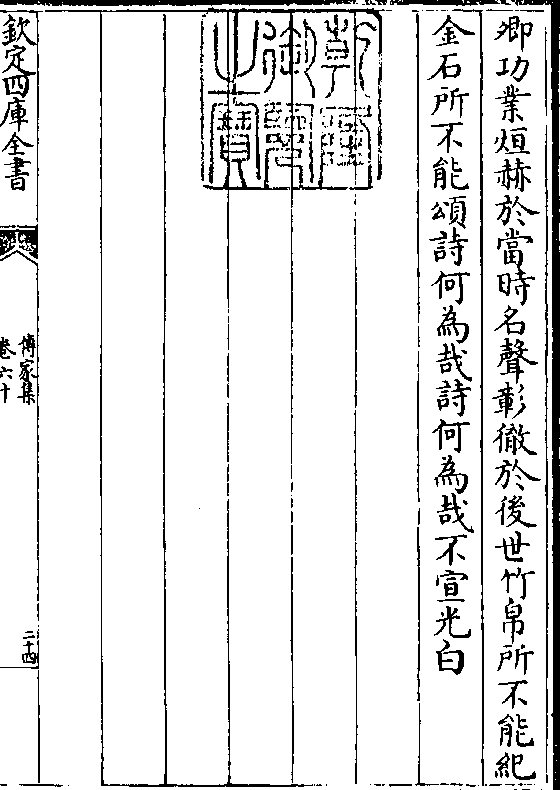 卿功業烜赫於當時名聲彰徹於後世竹帛所不能紀
金石所不能頌詩何為哉詩何為哉不宣光白
乾隆御覽之寶
欽定四庫全書
傳家集
卷六十
二十四